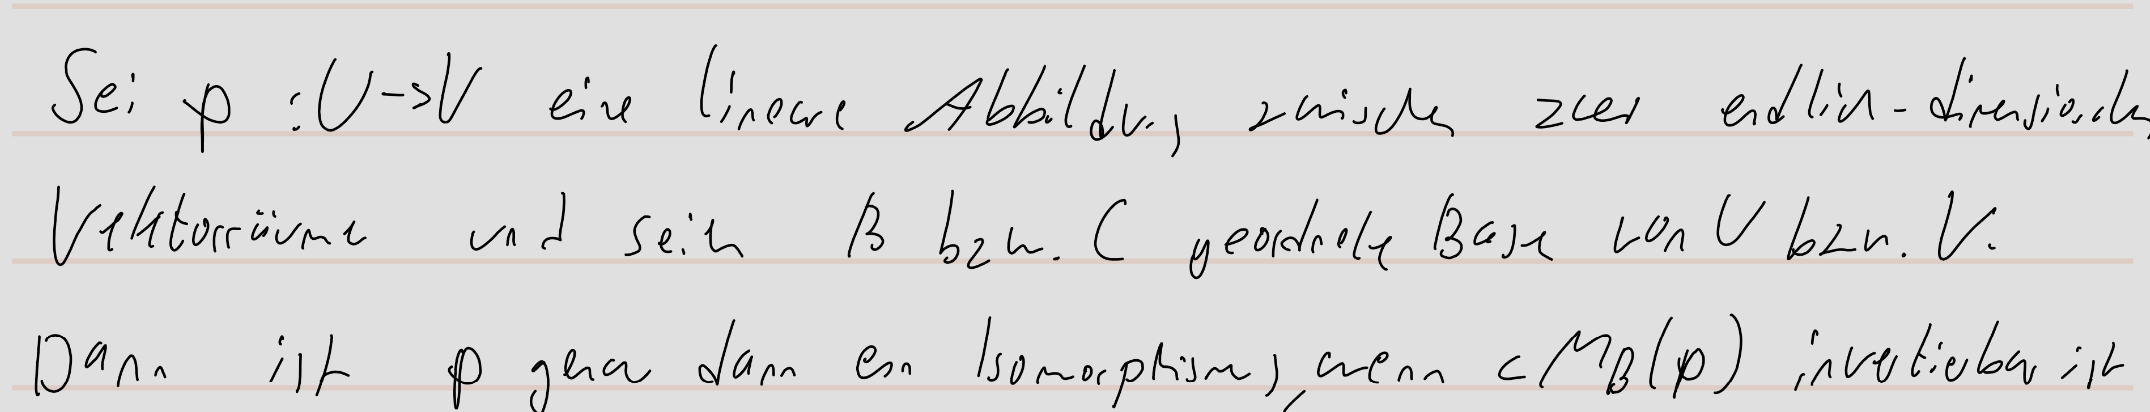 Sei φ : U → V eine lineare Abbildung zwischen zwei endlich-dimensionalen
Vektorräume und seien B bzw. C geordnete Basen von U bzw. V.
Dann ist φ genau dann ein Isomorphismus, wenn cMB(φ) invertierbar ist